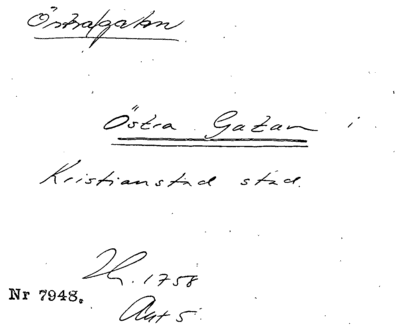 Östra gatan
Östra Gatan i
Kristianstad stad.
Th. 1758
Nr 7948. Akt 5.